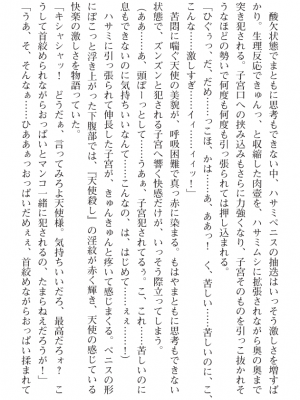 酸欠状態でまともに思考もできない中、ハサミペニスの抽送はいっそう激しさを増すば
かり。生理反応できゅんっ、と収縮した肉壺を、ハサミムシに拡張されながら奥の奥まで
突き犯される。子宮口への突き込みもさらに力強くなり、子宮そのものを引っこ抜かれそ
うなほどの勢いで何度も何度も引っ張られては押し込まれる。
「ひぐぅっ、だ、だめ……っごほ、かは……あ、ああっ！　く、苦しい……苦しいのに、こ、
こんな……激しすぎ……イィ……イィッ！」
苦悶に喘ぐ天使の美貌が、呼吸困難で真っ赤に染まる。もはやまともに思考もできない
状態で、ズンズンと子宮へ響く快感だけが、いっそう際立ってしまう。
（ああ……あ、頭ぼーっとして……うあぁ、子宮犯されてるぅ……こ、これ……苦しいのに
息もできないのに気持ちいいなんて……こんなの、は、はじめて……ぇぇ……！）
ハサミに引っ張られて伸長した子宮が、きゅんきゅんと疼いて感じまくる。ペニスの形
にぼこっと浮き上がった下腹部では、『天使殺し』の淫紋が赤く輝き、天使の感じている
快楽の激しさを物語っていた。
「キシャシャッ！　どうだぁ、言ってみろよ天使様、気持ちいいだろ、最高だろォ？　こ
うして首絞められながらおっぱいとマンコ一緒に犯されるの、たまらねえだろうが！」
「うあ、そ、そんなぁ……ひあああぅおっぱいだめぇぇ、首絞めながらおっぱい揉まれて